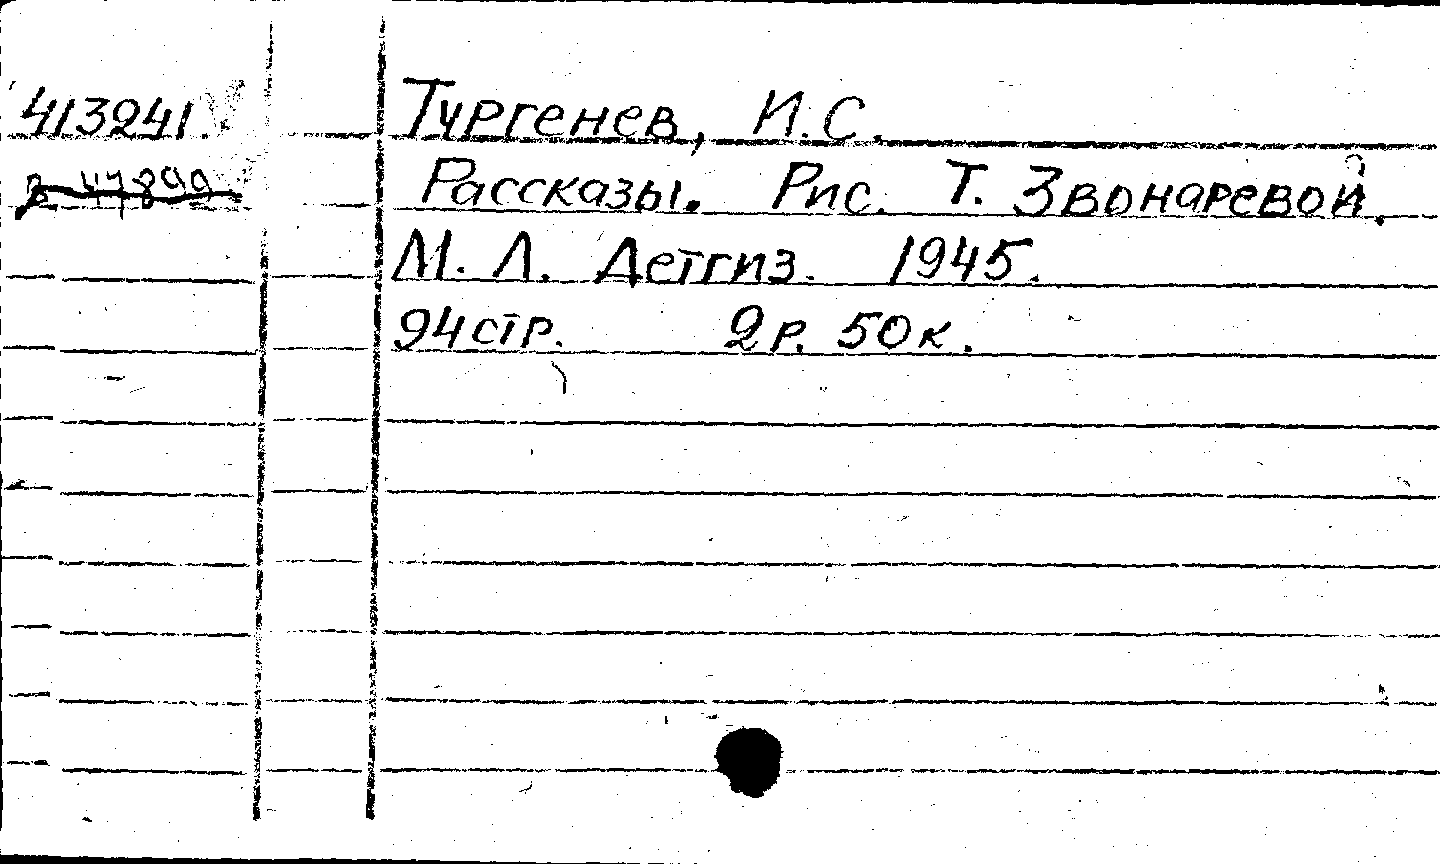 413241. Тургенев, И.С.
Рассказы. Рис. Т. Звонаревой.
М. Л. Детгиз. 1945.
94 стр. 2 р. 50 к.